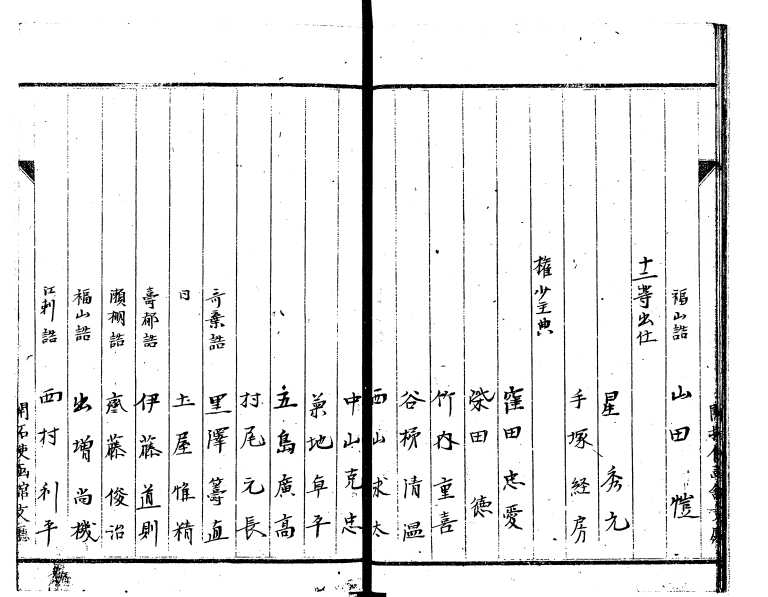 福山詰 山田愷
十二等出仕
星秀允
手塚経房
権少主典
窪田忠愛
柴田徳
竹内重喜
谷栁清温
西山求太
中山克忠
菊地卓平
五島廣高
村尾元長
斉棄詰 里澤籌直
同 土屋惟精
壽都詰 伊藤道則
瀬棚詰 齋藤俊治
福山詰 出増尚機
江刺詰 西村利平
開拓使函館支廳